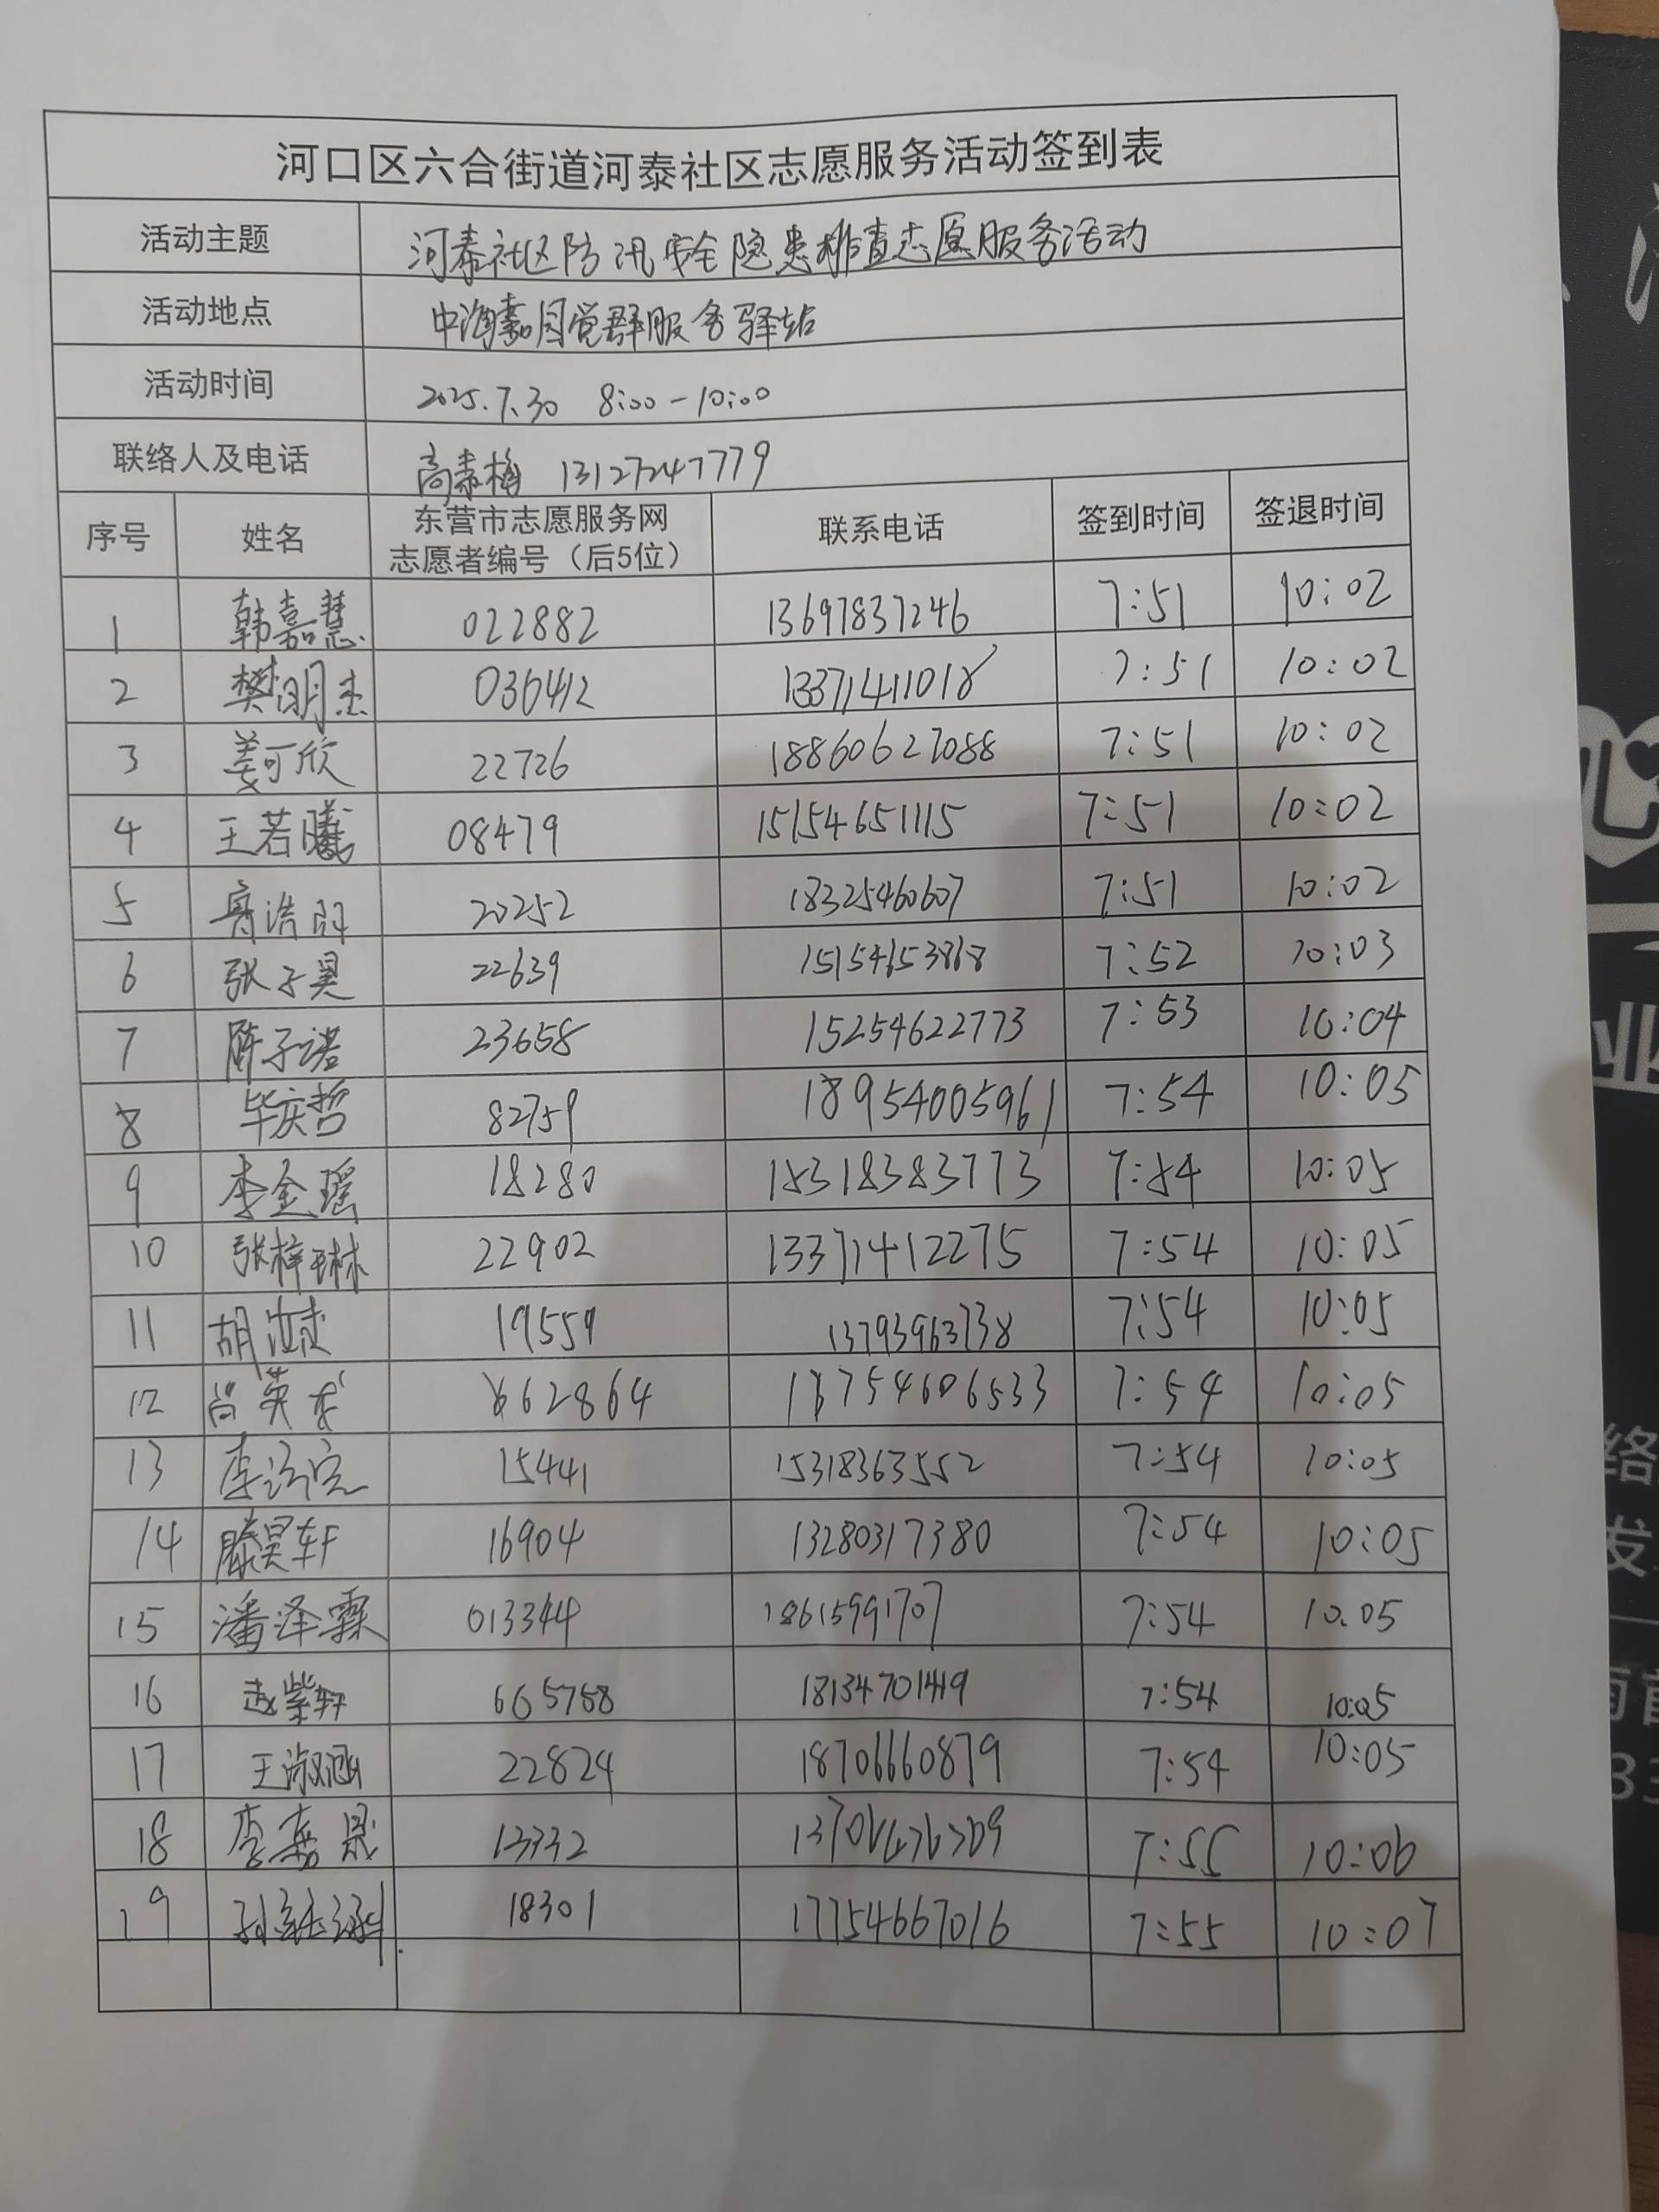 河口区六合街道河泰社区志愿服务活动签到表
活动主题 河泰社区防汛安全隐患排查志愿服务活动
活动地点 中海嘉园党群服务驿站
活动时间 2025.7.30 8:00-10:00
联络人及电话 高素梅 13127247779
序号 姓名 东营市志愿服务网 联系电话 签到时间 签退时间
志愿者编号（后5位）
1 韩嘉慧 022882 13697837246 7:51 10:02
2 樊明杰 036412 13371411018 7:51 10:02
3 姜可欣 22726 18860627088 7:51 10:02
4 王若曦 08479 15154651115 7:51 10:02
5 20252 18325460607 7:51 10:02
6 张子昊 22639 15154653868 7:52 10:03
7 陈子诺 23658 15254622773 7:53 10:04
8 毕庆哲 82759 18954005961 7:54 10:05
9 李金瑶 18280 15318383773 7:54 10:05
10 张梓琳 22902 13371412275 7:54 10:05
11 19559 13793963738 7:54 10:05
12 尚英 662864 7:54 10:05
13 15441 15318363552 7:54 10:05
14 滕昊轩 16904 13280317380 7:54 10:05
15 潘泽霖 013344 18615991707 7:54 10:05
16 赵紫轩 665758 18134701419 7:54 10:05
17 王淑涵 22824 18706660879 7:54 10:05
18 李嘉晟 13332 7:55 10:06
19 18301 17754667016 7:55 10:07
络
发
业